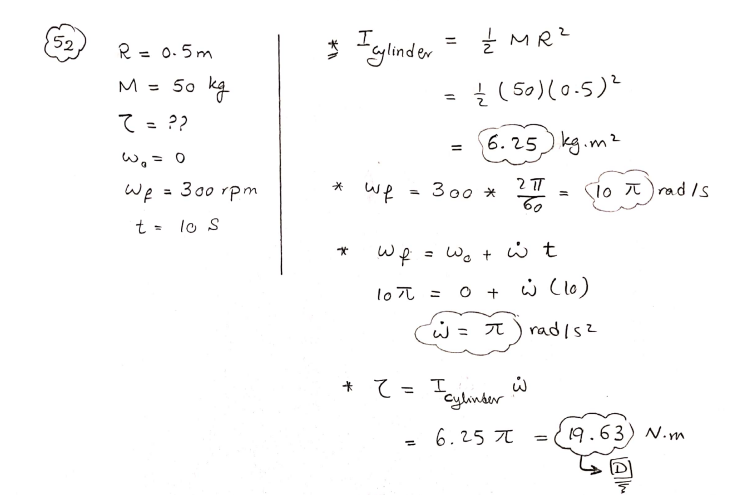 52
R = 0.5m
M = 50 kg
τ = ??
ω₀ = 0
ωf = 300 rpm
t = 10 S
* I cylinder = 1/2 M R²
= 1/2 (50)(0.5)²
= 6.25 kg.m²
* ωf = 300 * 2π/60 = 10 π rad/s
* ωf = ω₀ + ω̇ t
10π = 0 + ω̇ (10)
ω̇ = π rad/s²
* τ = I cylinder ω̇
= 6.25 π = 19.63 N.m
↳ D